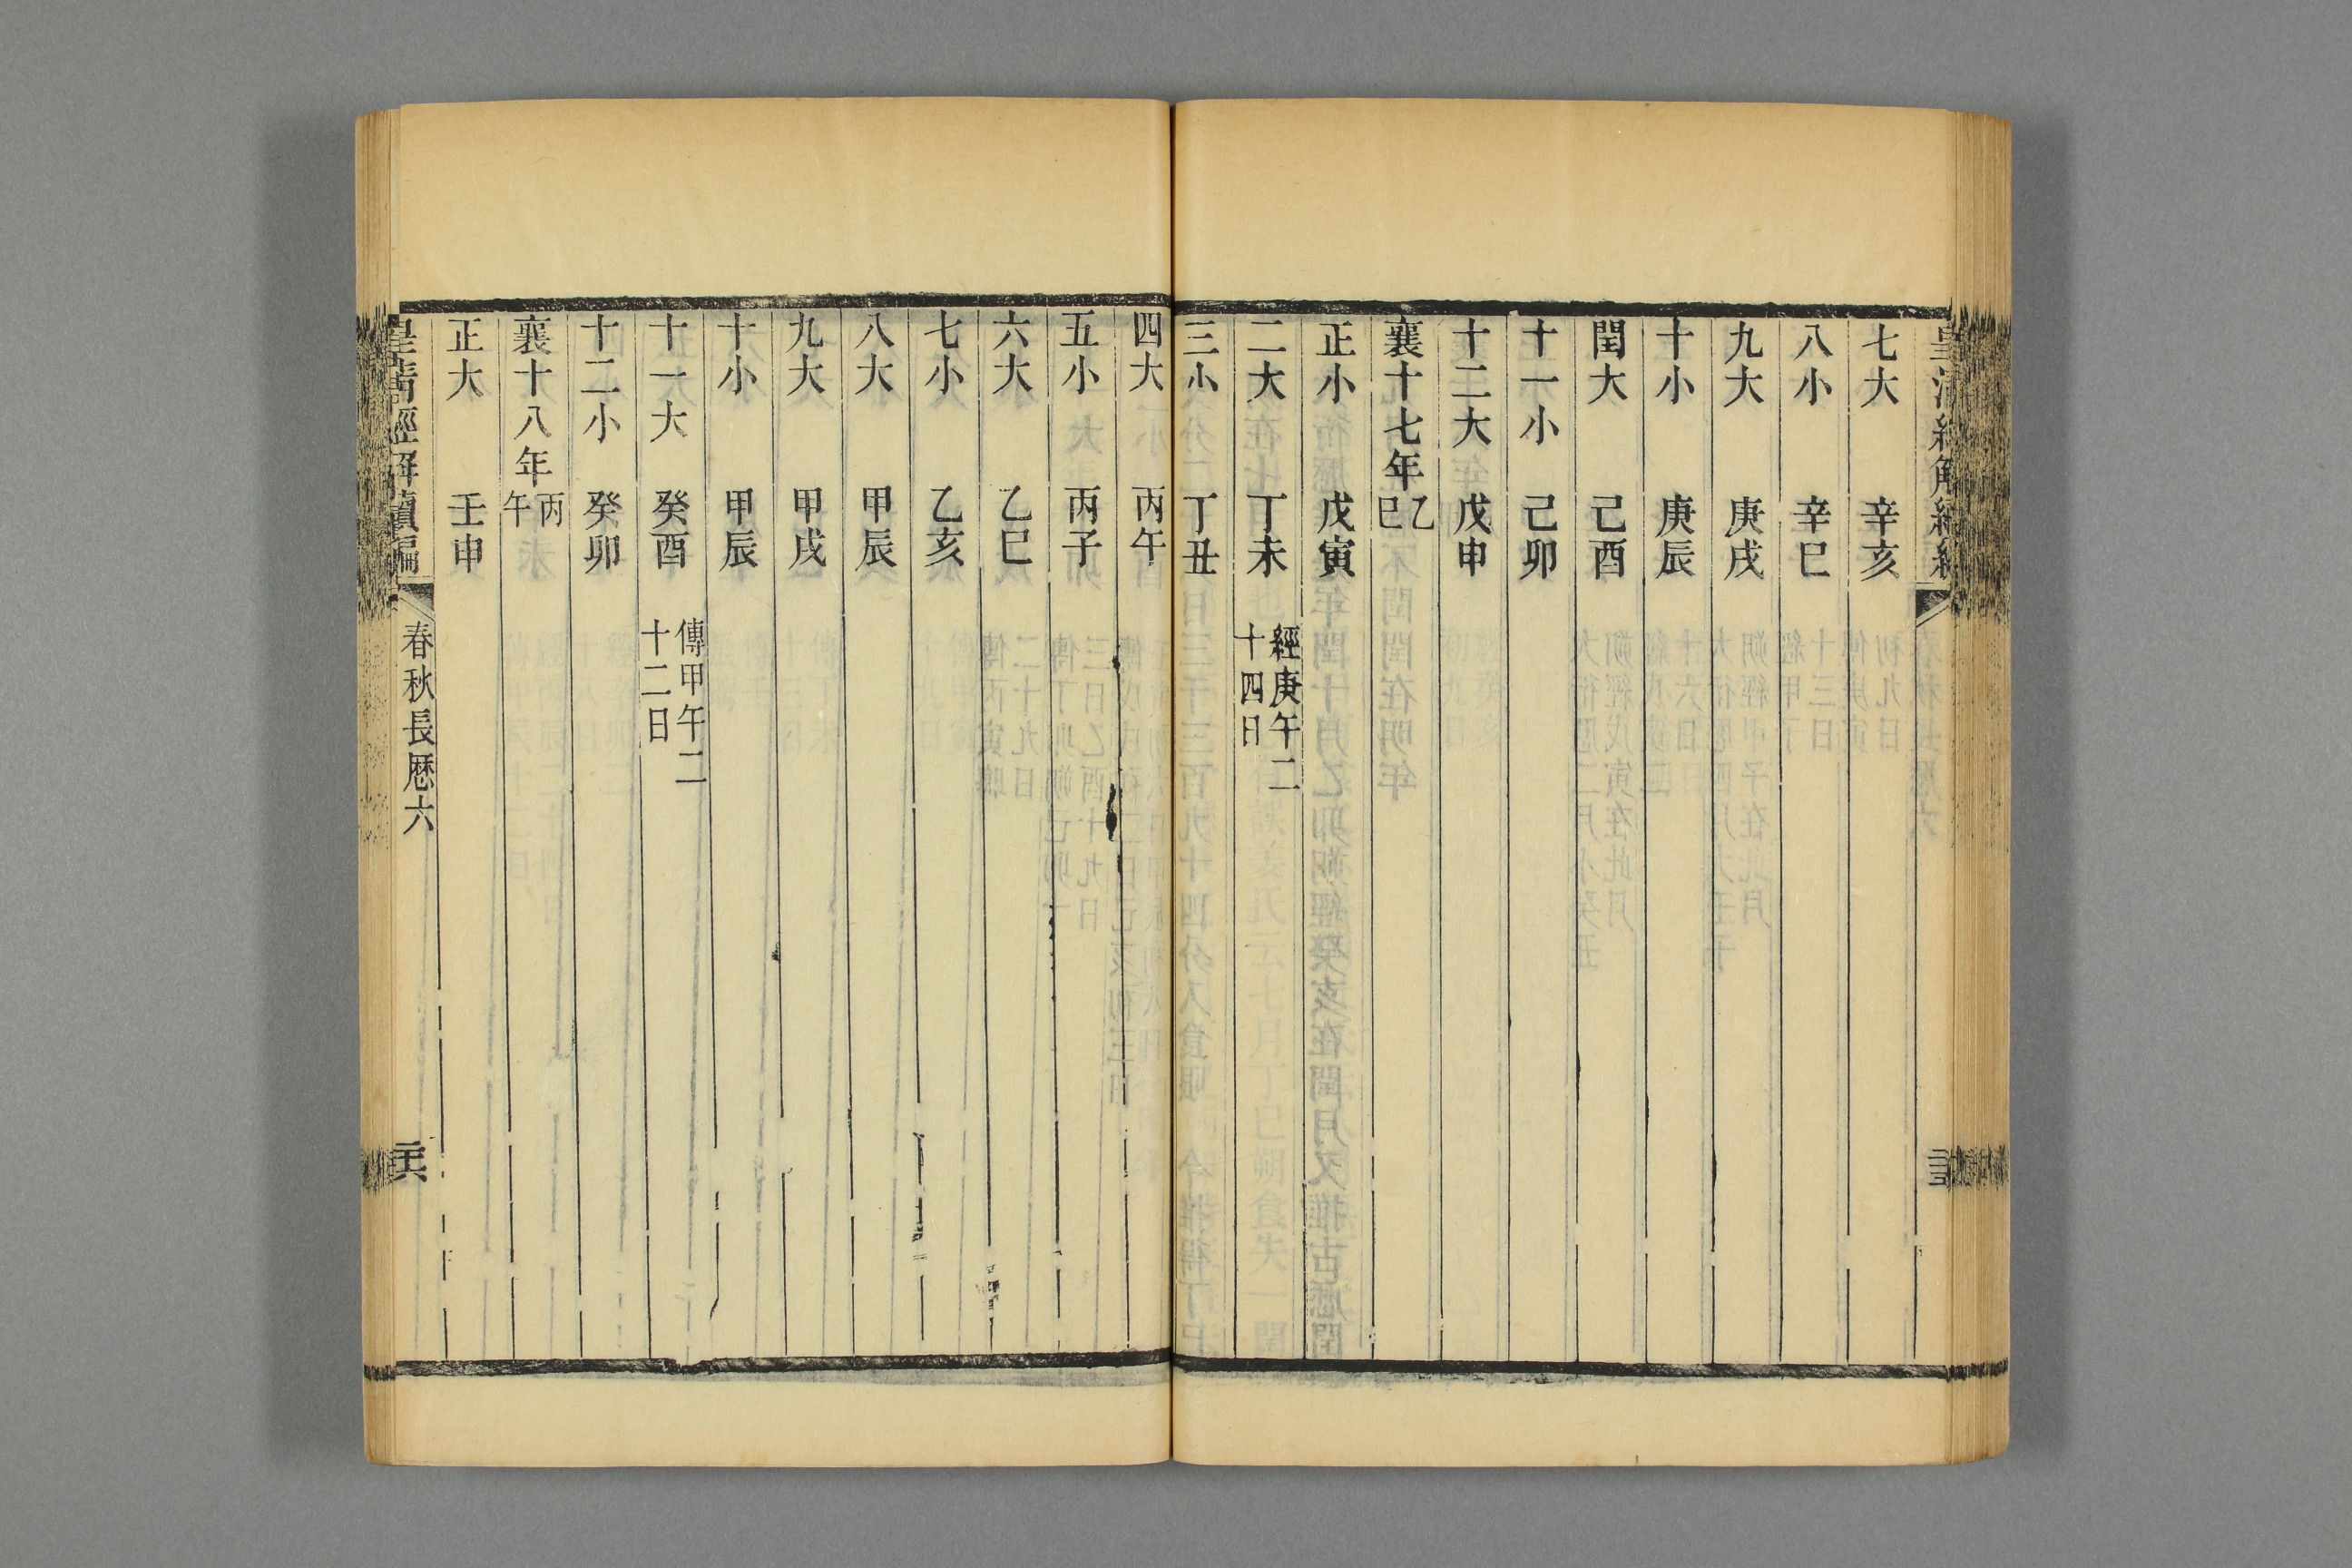 七大 辛亥
八小 辛巳
九大 庚戌
十小 庚辰
閏大 己酉
十一小 己卯
十二大 戊申
襄十七年 乙巳
正小 戊寅
二大 丁未 經庚午二十四日
三小 丁丑
四大 丙午
五小 丙子
六大 乙巳
七小 乙亥
八大 甲辰
九大 甲戌
十小 甲辰
十一大 癸酉 傳甲午二十二日
十二小 癸卯
襄十八年 丙午
正大 壬申
皇清經解續編 春秋長厤六